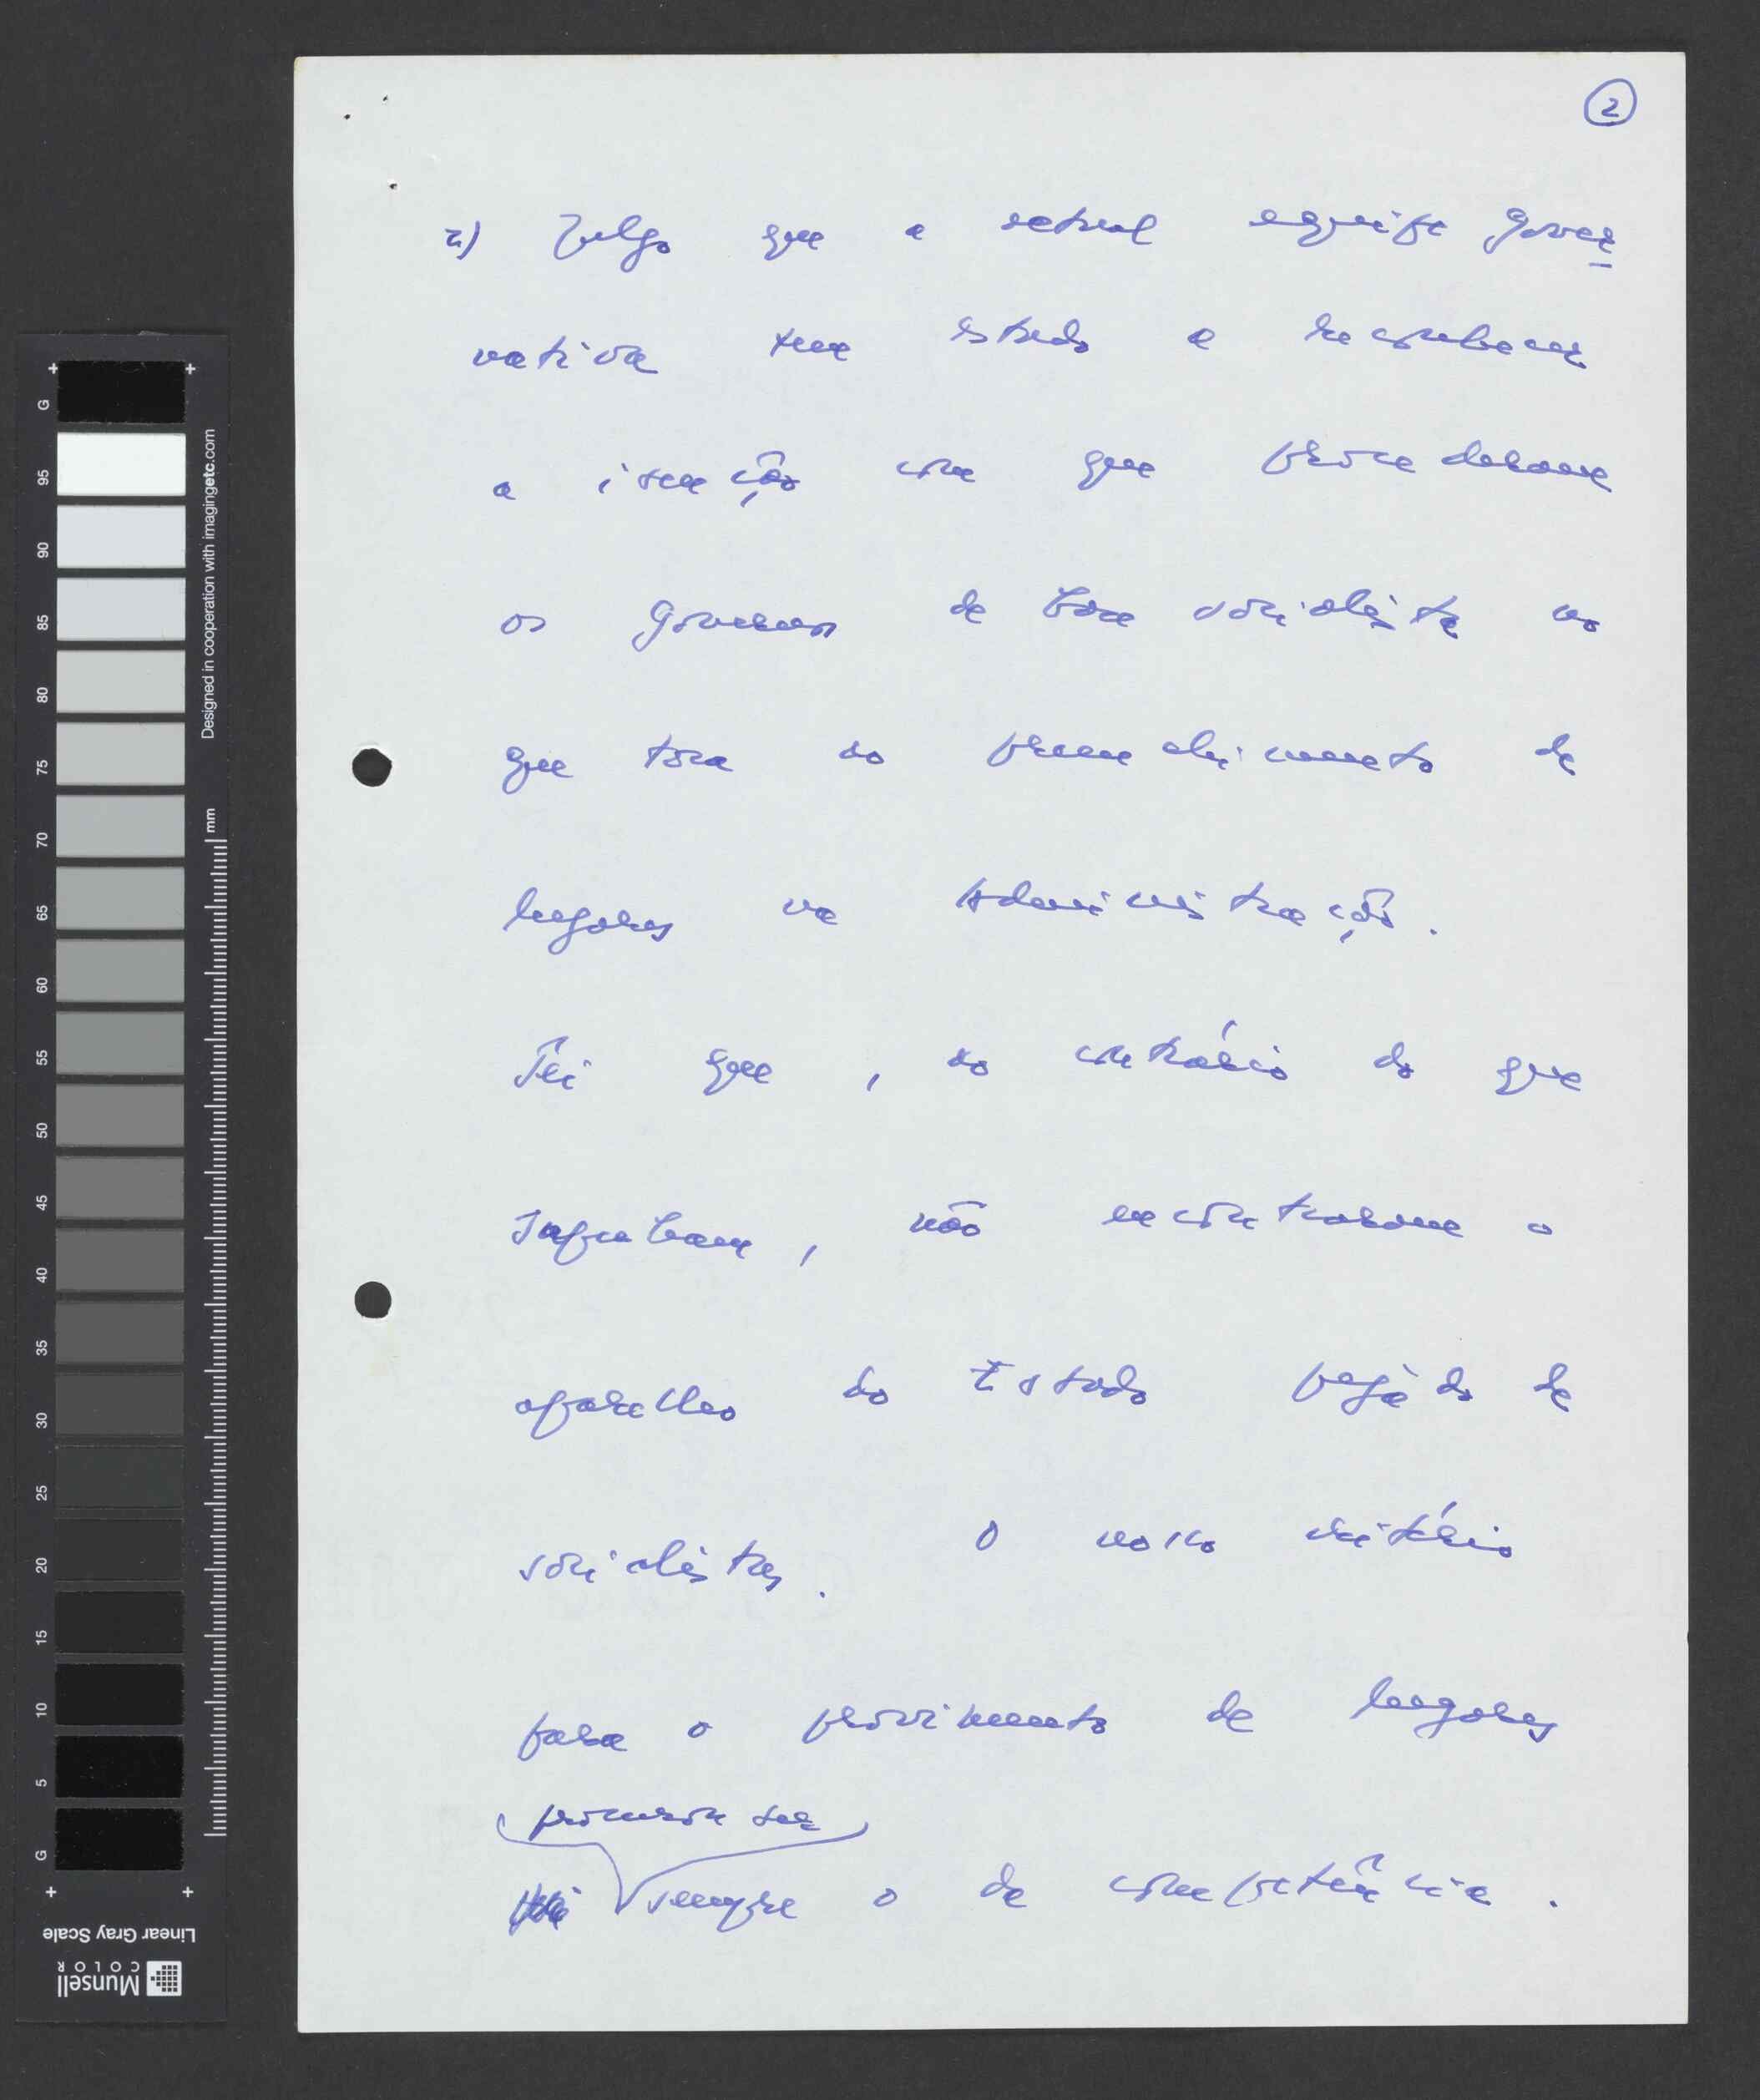 2
2) Julgo que a actual equipa gover
nativa tem estado a reconhecer
a isenção com que procederam
os Governos de base socialista no
que toca ao preenchimento de
lugares na Administração.
Sei que, ao contrário do que
supunham, não encontraram o
aparelho do Estado pejado de
socialistas. O nosso critério
para o provimento de lugares
procurou ser
sempre o de competência.
G
95
90
85
80
75
70
65
60
55
50
45
40
35
30
25
20
15
10
5
G
mm
Designed in cooperation with imagingetc.com
Linear Gray Scale
Munsell
COLOR